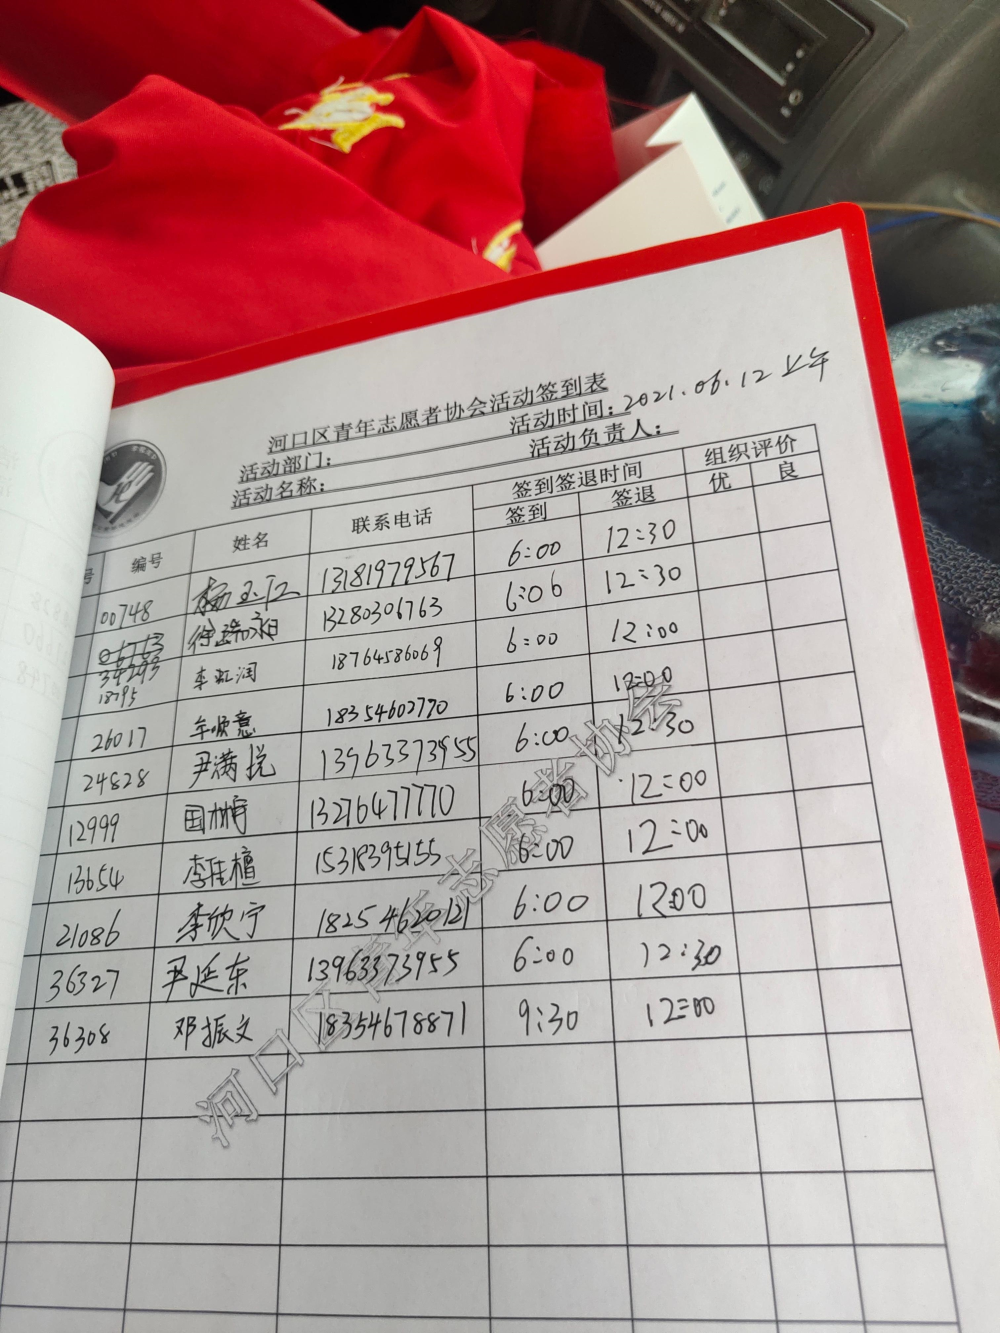 河口区青年志愿者协会活动签到表
活动部门： 活动时间：2021.06.12 上午
活动名称： 活动负责人：
号 编号 姓名 联系电话 签到签退时间 组织评价
签到 签退 优 良
00748 杨玉江 13181979567 6:00 12:30
34293 徐瑞 13280306763 6:06 12:30
18795 李虹润 18764586069 6:00 12:00
26017 牟顺意 18354602770 6:00 12:00
24828 尹满悦 13963373955 6:00 12:30
12999 国 13276477770 6:00 12:00
13654 李佳檀 15318395155 6:00 12:00
21086 李欣宁 18254620121 6:00 12:00
36327 尹延东 13963373955 6:00 12:30
36308 邓振文 18354678871 9:30 12:00
河口区青年志愿者协会